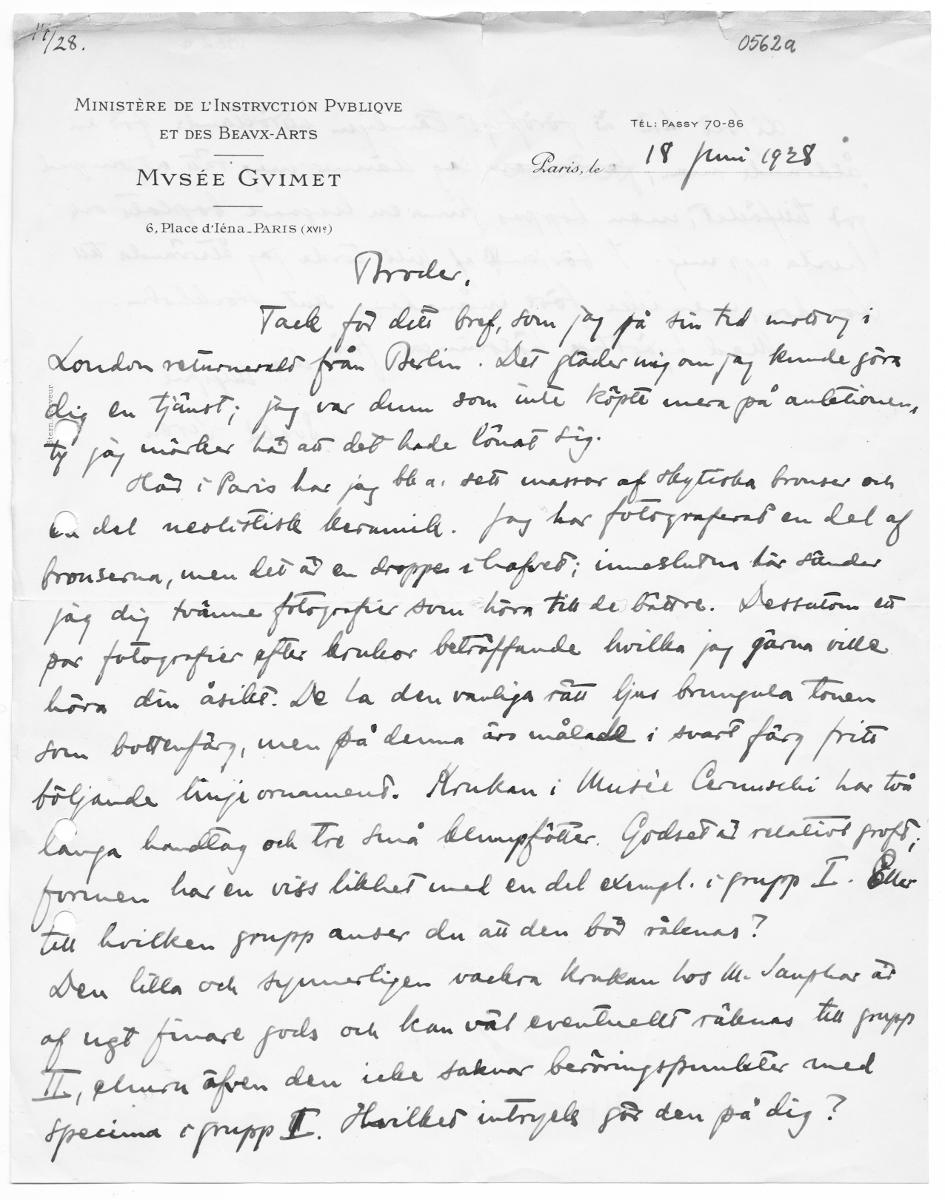 /28.
0562a
MINISTÈRE DE L'INSTRVCTION PVBLIQVE
ET DES BEAVX-ARTS
MVSÉE GVIMET
6, Place d'Iéna_PARIS (XVIe)
TÉL: PASSY 70-86
Paris, le 18 Juni 1928
Broder.
Tack för ditt bref, som jag på sin tid mottog i
London returneradt från Berlin. Det gläder mig om jag kunde göra
dig en tjänst; jag var dum som inte köpte mera på auktionen,
ty jag märker här att det hade lönat sig.
Här i Paris har jag bl.a. sett massor af skytiska bronser och
en del neolitisk keramik. Jag har fotograferat en del af
bronserna, men det är en droppe i hafvet; inneslutna här sänder
jag dig tvänne fotografier som höra till de bättre. Dessutom ett
par fotografier efter krukor beträffande hvilka jag gärna ville
höra din åsikt. De ha den vanliga rätt ljus brungula tonen
som bottenfärg, men på denna äro målade i svart färg fritt
böljande linjeornament. Krukan i Musée Cernuschi har två
långa handtag och tre små klumpfötter. Godset är relativt groft;
formen har en viss likhet med en del exempl. i grupp I. Eller
till hvilken grupp anser du att den bör räknas?
Den lilla och synnerligen vackra krukan hos M. Jauphar är
af ngt finare gods och kan väl eventuellt räknas till grupp
II, ehuru äfven den icke saknar beröringspunkter med
specima i grupp I. Hvilket intryck gör den på dig?